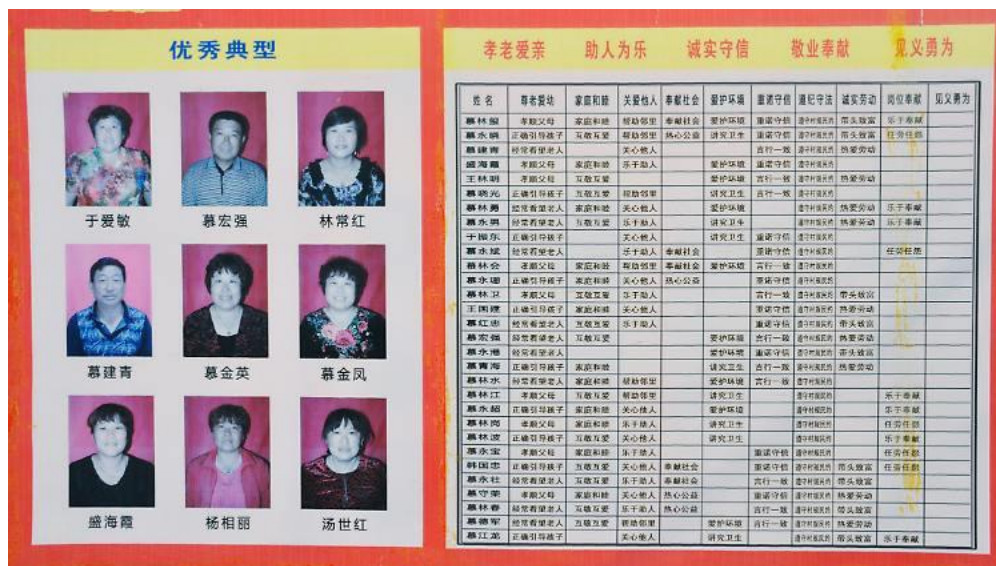 优秀典型
于爱敏 慕宏强 林常红
慕建青 慕金英 慕金凤
盛海霞 杨相丽 汤世红
孝老爱亲 助人为乐 诚实守信 敬业奉献 见义勇为
姓名 尊老爱幼 家庭和睦 关爱他人 奉献社会 爱护环境 重诺守信 遵纪守法 诚实劳动 岗位奉献 见义勇为
慕林玺 孝顺父母 家庭和睦 帮助邻里 奉献社会 爱护环境 重诺守信 遵守村规民约 带头致富 乐于奉献
慕永娟 正确引导孩子 互敬互爱 帮助邻里 热心公益 讲究卫生 重诺守信 遵守村规民约 带头致富 任劳任怨
慕建青 经常看望老人 关心他人 言行一致 遵守村规民约 热爱劳动
盛海霞 孝顺父母 家庭和睦 乐于助人 爱护环境 重诺守信 遵守村规民约
王林明 孝顺父母 互敬互爱 爱护环境 言行一致 遵守村规民约 热爱劳动
慕晓光 正确引导孩子 互敬互爱 帮助邻里 讲究卫生 言行一致 遵守村规民约
慕林勇 经常看望老人 家庭和睦 关心他人 爱护环境 遵守村规民约 热爱劳动 乐于奉献
慕永男 经常看望老人 互敬互爱 乐于助人 讲究卫生 遵守村规民约 热爱劳动 乐于奉献
于振东 正确引导孩子 关心他人 讲究卫生 重诺守信 遵守村规民约
慕永斌 经常看望老人 乐于助人 奉献社会 重诺守信 遵守村规民约 任劳任怨
慕林会 孝顺父母 家庭和睦 帮助邻里 奉献社会 爱护环境 言行一致 遵守村规民约
慕永理 正确引导孩子 家庭和睦 关心他人 热心公益 重诺守信 遵守村规民约
慕林卫 孝顺父母 互敬互爱 乐于助人 言行一致 遵守村规民约 带头致富
王国建 正确引导孩子 家庭和睦 关心他人 重诺守信 遵守村规民约 热爱劳动
慕红忠 经常看望老人 互敬互爱 乐于助人 重诺守信 遵守村规民约 带头致富
慕宏强 经常看望老人 互敬互爱 爱护环境 言行一致 遵守村规民约 热爱劳动
慕永港 经常看望老人 爱护环境 重诺守信 遵守村规民约 带头致富
慕青海 正确引导孩子 家庭和睦 讲究卫生 言行一致 遵守村规民约 热爱劳动
慕林水 经常看望老人 家庭和睦 帮助邻里 爱护环境 言行一致 遵守村规民约
慕林江 孝顺父母 互敬互爱 帮助邻里 讲究卫生 遵守村规民约 乐于奉献
慕永超 正确引导孩子 家庭和睦 关心他人 爱护环境 遵守村规民约 乐于奉献
慕林岗 孝顺父母 家庭和睦 乐于助人 讲究卫生 遵守村规民约 任劳任怨
慕林波 正确引导孩子 互敬互爱 关心他人 讲究卫生 遵守村规民约 乐于奉献
慕永宝 孝顺父母 家庭和睦 乐于助人 重诺守信 遵守村规民约 任劳任怨
韩国忠 正确引导孩子 互敬互爱 关心他人 奉献社会 重诺守信 遵守村规民约 带头致富 任劳任怨
慕永社 经常看望老人 互敬互爱 乐于助人 奉献社会 言行一致 遵守村规民约 带头致富
慕守荣 孝顺父母 家庭和睦 关心他人 热心公益 重诺守信 遵守村规民约 热爱劳动
慕林春 孝顺父母 互敬互爱 乐于助人 热心公益 言行一致 遵守村规民约 带头致富
慕德军 经常看望老人 互敬互爱 帮助邻里 爱护环境 言行一致 遵守村规民约 热爱劳动
慕江龙 正确引导孩子 关心他人 讲究卫生 遵守村规民约 带头致富 乐于奉献